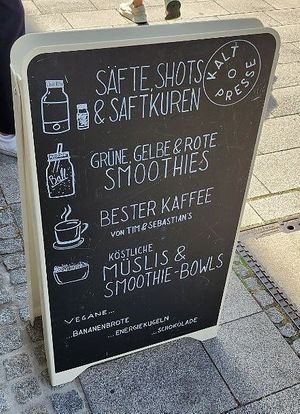 SÄFTE, SHOTS
& SAFTKUREN
KALT
PRESSE
GRÜNE, GELBE & ROTE
SMOOTHIES
Ball
BESTER KAFFEE
VON TIM & SEBASTIAN'S
KÖSTLICHE
MÜSLIS &
SMOOTHIE-BOWLS
VEGANE...
...BANANENBROTE
...ENERGIEKUGELN
...SCHOKOLADE